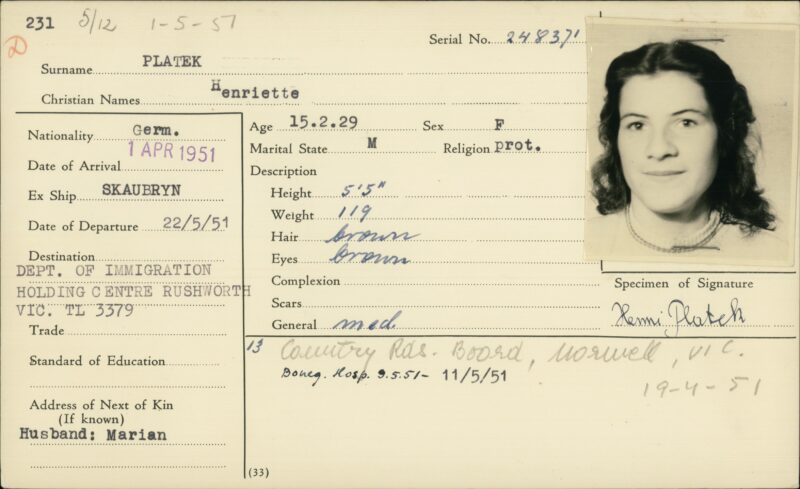 231 5/12 1-5-51
Serial No. 248371
Surname PLATEK
Christian Names Henriette
Nationality Germ.
Date of Arrival 1 APR 1951
Ex Ship SKAUBRYN
Date of Departure 22/5/51
Destination
DEPT. OF IMMIGRATION
HOLDING CENTRE RUSHWORTH
VIC. TL 3379
Trade
Standard of Education
Address of Next of Kin
(If known)
Husband: Marian
Age 15.2.29 Sex F
Marital State M Religion prot.
Description
Height 5'5"
Weight 119
Hair brown
Eyes brown
Complexion
Scars
General med
Specimen of Signature
Henni Platek
13 Country Rds. Board, Morwell, VIC.
19-4-51
Boneg. Hosp. 9.5.51- 11/5/51
(33)